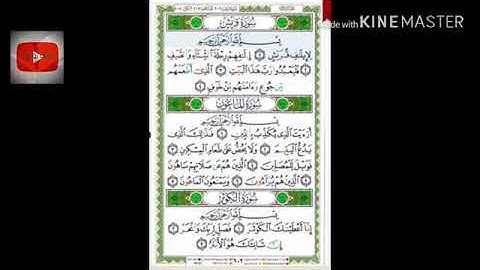 Made with KINEMASTER
سُورَةُ قُرَيْشٍ
بِسْمِ اللَّهِ الرَّحْمَٰنِ الرَّحِيمِ
لِإِيلَٰفِ قُرَيْشٍ ١ إِۦلَٰفِهِمْ رِحْلَةَ الشِّتَآءِ وَالصَّيْفِ
٢ فَلْيَعْبُدُوا۟ رَبَّ هَٰذَا الْبَيْتِ ٣ الَّذِىٓ أَطْعَمَهُم
مِّن جُوعٍ وَءَامَنَهُم مِّنْ خَوْفٍ ٤
سُورَةُ الْمَاعُونِ
بِسْمِ اللَّهِ الرَّحْمَٰنِ الرَّحِيمِ
أَرَءَيْتَ الَّذِى يُكَذِّبُ بِالدِّينِ ١ فَذَٰلِكَ الَّذِى
يَدُعُّ الْيَتِيمَ ٢ وَلَا يَحُضُّ عَلَىٰ طَعَامِ الْمِسْكِينِ ٣
فَوَيْلٌ لِّلْمُصَلِّينَ ٤ الَّذِينَ هُمْ عَن صَلَاتِهِمْ سَاهُونَ
٥ الَّذِينَ هُمْ يُرَآءُونَ ٦ وَيَمْنَعُونَ الْمَاعُونَ ٧
سُورَةُ الْكَوْثَرِ
بِسْمِ اللَّهِ الرَّحْمَٰنِ الرَّحِيمِ
إِنَّآ أَعْطَيْنَٰكَ الْكَوْثَرَ ١ فَصَلِّ لِرَبِّكَ وَانْحَرْ ٢
إِنَّ شَانِئَكَ هُوَ الْأَبْتَرُ ٣
٦٠٢